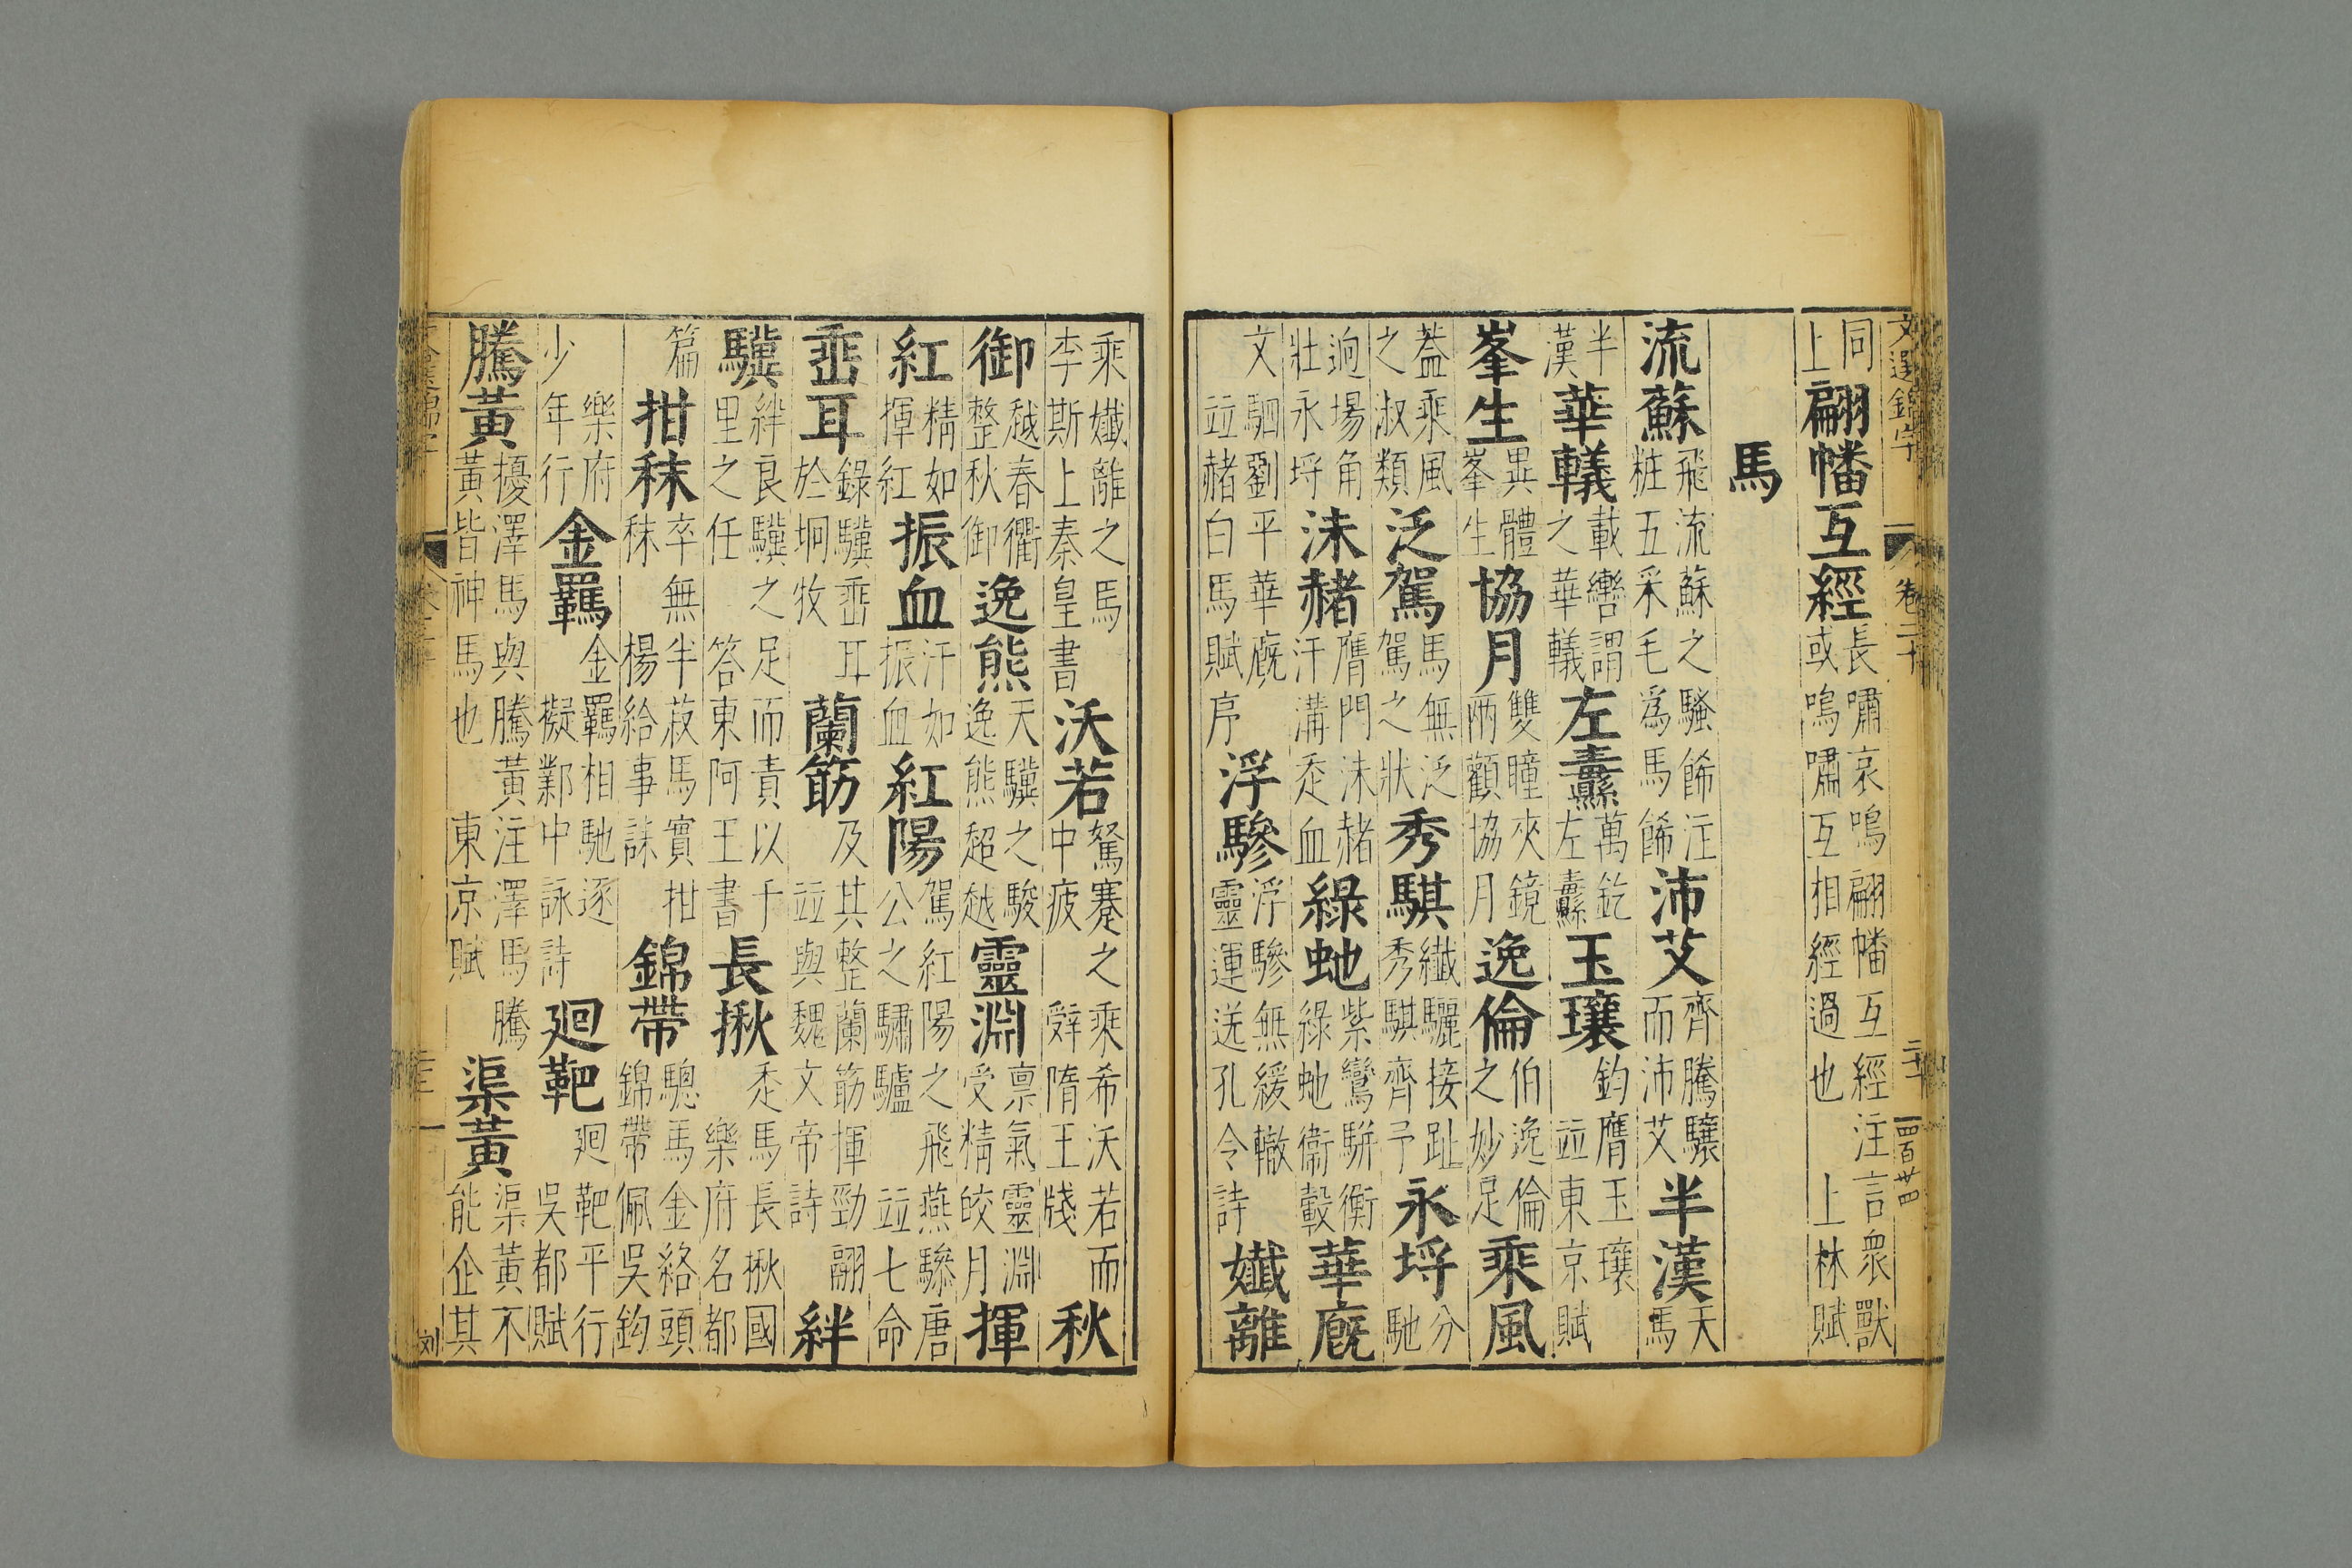 同上翩幡互經長嘯哀鳴翩幡互經注言衆獸或鳴嘯互相經過也 上林賦
馬
流蘇飛流蘇之騷餙注粧五采毛爲馬餙沛艾齊騰驤而沛艾半漢天馬
半漢華轙載轡謂之華轙左纛萬釳左纛玉瓖鈎膺玉瓖並東京賦
峯生異體峯生協月雙瞳夾鏡兩顴協月逸倫伯逸倫之妙足乘風
葢乘風之淑類泛駕馬無泛駕之狀秀騏纖驪接趾秀騏齊亍永埒分馳
逈場角壯永埒沬赭膺門沬赭汗溝赤血綠虵紫鸞駢衡綠虵衞轂華廐
文駟劉平華廐並赭白馬賦序浮驂浮驂無緩轍靈運送孔令詩孅離
文選錦字 卷二十 二十一 四百廿四
乘孅離之馬李斯上秦皇書沃若駑蹇之乘希沃若而中疲 辤隋王牋秋
御越春衢整秋御逸熊天驥之駿逸熊超越靈淵禀氣靈淵受精皎月揮
紅精如揮紅振血汗如振血紅陽駕紅陽之飛燕驂唐公之驌驢並七命
垂耳錄驥垂耳於坰牧蘭筋及其整蘭筋揮勁翮並與魏文帝詩絆
驥絆良驥之足而責以千里之任 答東阿王書長揪走馬長揪國樂府名都
篇拑秣卒無半菽馬實拑秣 楊給事誄錦帶驄馬金絡頭錦帶佩吳鈎
樂府少年行金羈金羈相馳逐 擬鄴中詠詩廻靶廻靶平行吳都賦
騰黃擾澤馬與騰黃注澤馬騰黃皆神馬也 東京賦渠黃渠黃不能企其
刘